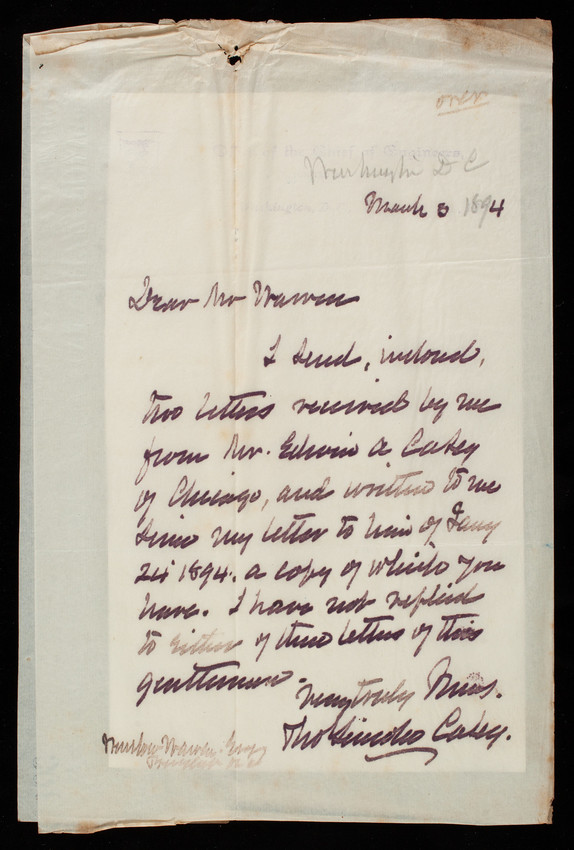 over
of the Chief of Engineers
Washington D C
March 3 1894
Dear Mr Warren
I send, inclosed,
two letters received by me
from Mr. Edwin A Casey
of Chicago, and written to me
since my letter to him of Jany
24 1894. a copy of which you
have. I have not replied
to either of these letters of this
gentleman.
Very truly Yours.
Tho Lincoln Casey.
Winslow Warren Esqr